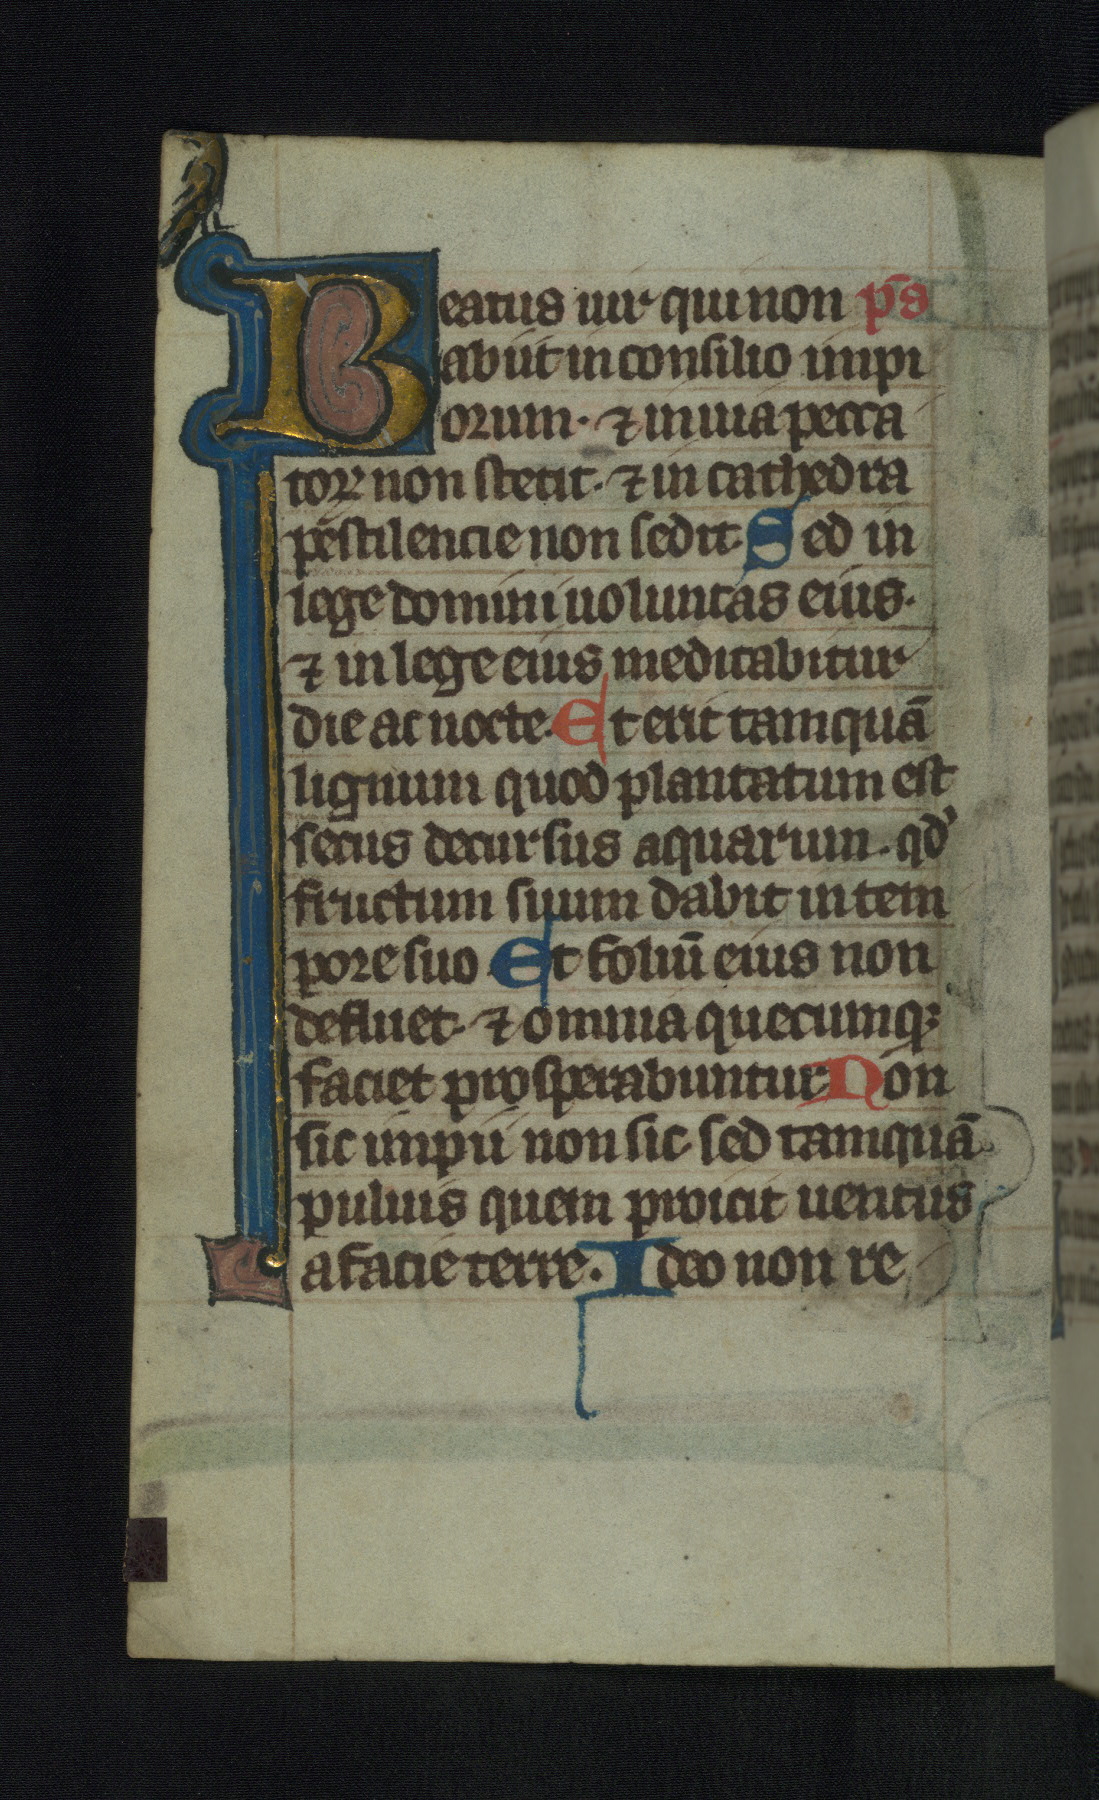 Beatus uir qui non p̄s
abiit in consilio impi
orum· ⁊ in uia pecca
toꝝ non stetit· ⁊ in cathedra
pestilencie non sedit· Sed in
lege domini uoluntas eius·
⁊ in lege eius meditabitur
die ac nocte· Et erit tamquā
lignum quod plantatum est
secus decursus aquarum· qd'
fructum suum dabit in tem
pore suo· Et foliū eius non
defluet· ⁊ omnia quecumqꝫ
faciet prosperabuntur Non
sic impii non sic· sed tamquā
puluis quem proicit uentus
a facie terre· Ideo non re